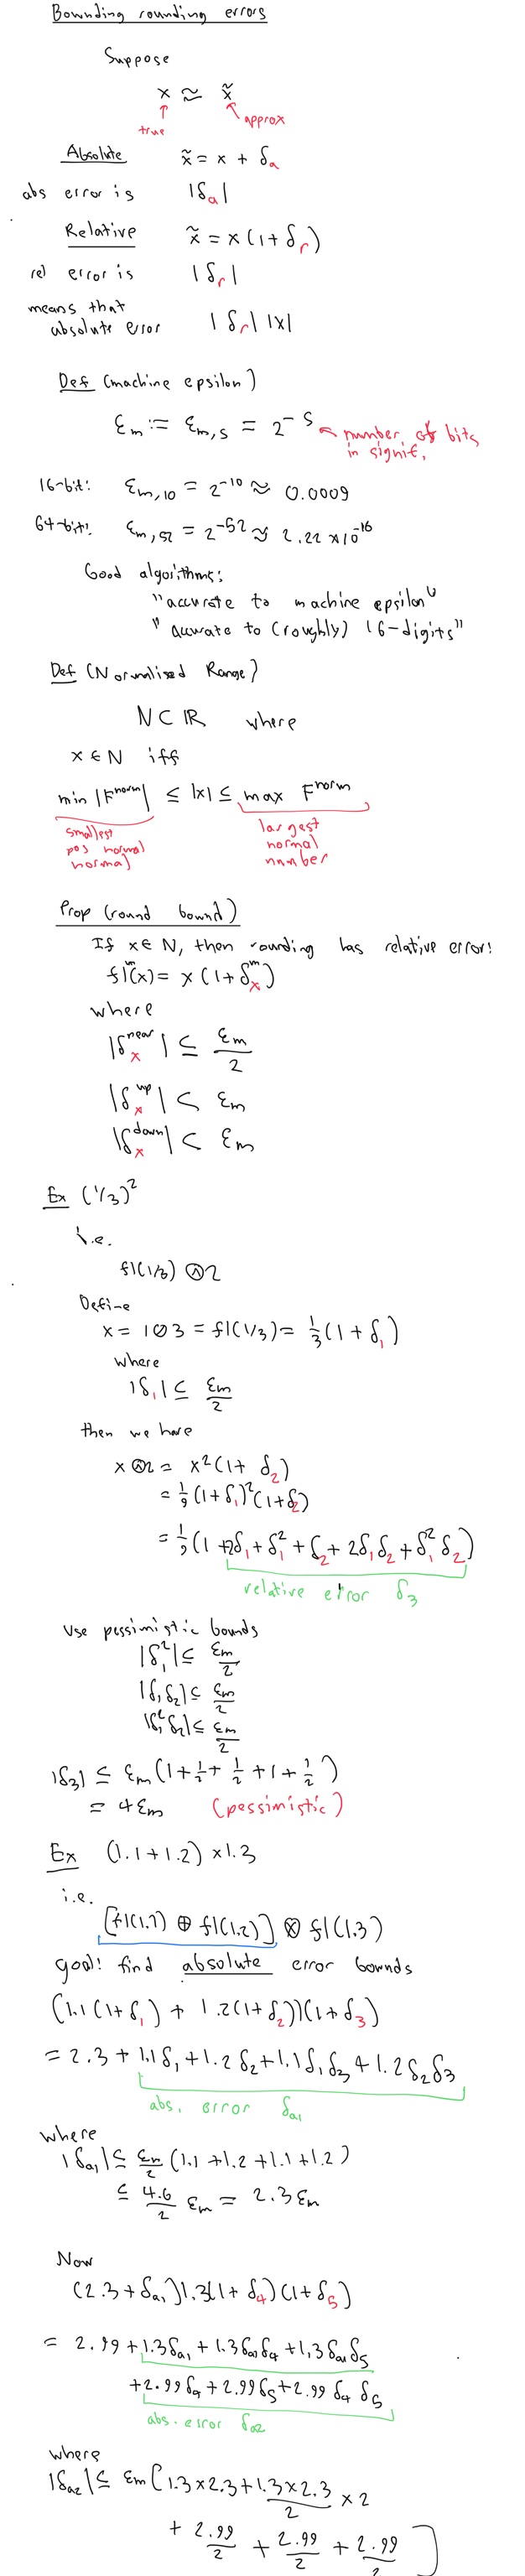 Bounding rounding errors
Suppose
x ≈ x̃
true
approx
Absolute x̃ = x + δa
abs error is |δa|
Relative x̃ = x(1+δr)
rel error is |δr|
means that
absolute error |δr| |x|
Def (machine epsilon)
εm := εm,s = 2^-S
number of bits
in signif.
16-bit: εm,10 = 2^-10 ≈ 0.0009
64-bit: εm,52 = 2^-52 ≈ 2.22 × 10^-16
Good algorithms:
"accurate to machine epsilon"
"accurate to (roughly) 16-digits"
Def (Normalised Range)
N ⊂ ℝ where
x ∈ N iff
min |F^norm| ≤ |x| ≤ max F^norm
smallest
pos normal
normal
largest
normal
number
Prop (round bound)
If x ∈ N, then rounding has relative error:
fl^m(x) = x(1+δx^m)
where
|δx^near| ≤ εm/2
|δx^up| < εm
|δx^down| < εm
Ex (1/3)^2
i.e.
fl(1/3) ⓐ2
Define
x = 1⊘3 = fl(1/3) = 1/3(1+δ1)
where
|δ1| ≤ εm/2
then we have
x ⓐ2 = x^2(1+ δ2)
= 1/9 (1+δ1)^2(1+δ2)
= 1/9 (1 + 2δ1 + δ1^2 + δ2 + 2δ1δ2 + δ1^2 δ2)
relative error δ3
Use pessimistic bounds
|δ1^2| ≤ εm/2
|δ1δ2| ≤ εm/2
|δ1^2δ2| ≤ εm/2
|δ3| ≤ εm(1+1/2+1/2+1+1/2)
= 4εm (pessimistic)
Ex (1.1+1.2)×1.3
i.e.
[fl(1.1) ⊕ fl(1.2)] ⊗ fl(1.3)
goal: find absolute error bounds
(1.1(1+δ1) + 1.2(1+δ2))(1+δ3)
= 2.3 + 1.1δ1 + 1.2δ2 + 1.1δ1δ3 + 1.2δ2δ3
abs. error δa1
where
|δa1| ≤ εm/2 (1.1+1.2+1.1+1.2)
≤ 4.6/2 εm = 2.3εm
Now
(2.3+δa1)1.3(1+δ4)(1+δ5)
= 2.99 + 1.3δa1 + 1.3δa1δ4 + 1.3δa1δ5
+2.99δ4 + 2.99δ5 + 2.99 δ4 δ5
abs. error δa2
where
|δa2| ≤ εm(1.3×2.3 + 1.3×2.3/2 × 2
+ 2.99/2 + 2.99/2 + 2.99/2 ]